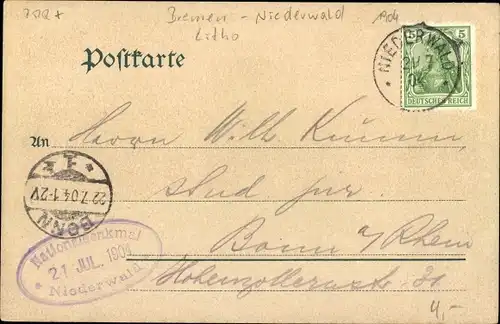 Bremen - Niederwald 1904
Litho
Postkarte
NIEDERWALD
5
DEUTSCHES REICH
An Herrn Wilh Krumm
stud jur.
Bonn a/Rhein
Hohenzollernstr. 31
BONN
22.7.04.1-2V
Nationaldenkmal
21 JUL. 1904
* Niederwald *
4,-